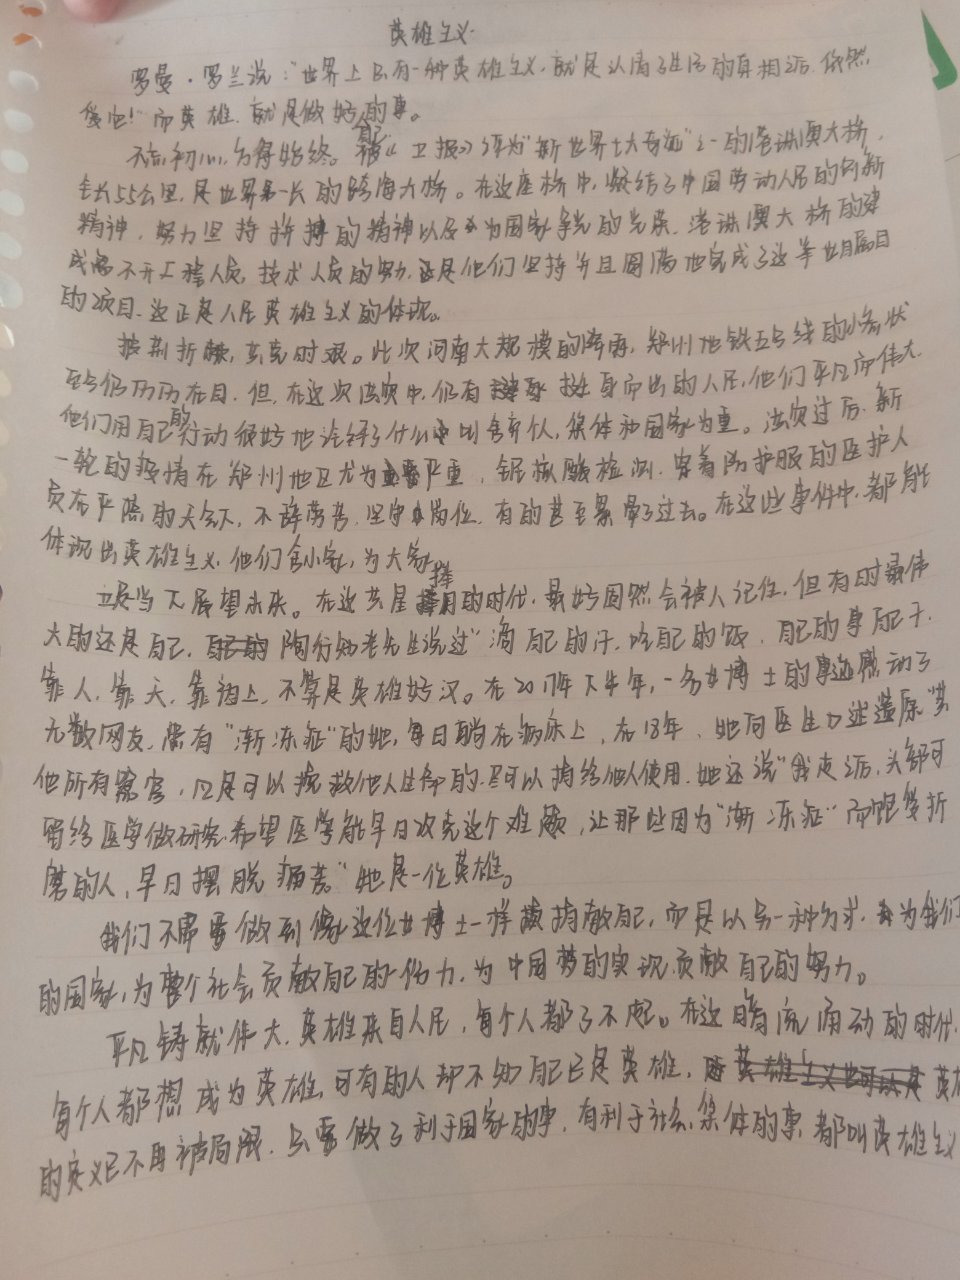 英雄主义
罗曼·罗兰说:"世界上只有一种英雄主义,就是认清了生活的真相后,依然
爱它!"而英雄,就是做好自己的事。
不忘初心,方得始终。被《卫报》评为"新世界七大奇迹"之一的港珠澳大桥,
全长55公里,是世界第一长的跨海大桥。在这座桥中,凝结了中国劳动人民的创新
精神,努力坚持拼搏的精神以及为国家争光的光荣,港珠澳大桥的建
成离不开工程人员,技术人员的努力,还是他们坚持并且圆满地完成了这举世瞩目
的项目,这正是人民英雄主义的体现。
披荆折棘,共克时艰。此次河南大规模的降雨,郑州地铁五号线的惨状
至今仍历历在目,但,在这次洪灾中,仍有挺身而出的人民,他们平凡而伟大,
他们用自己的行动很好地诠释了什么叫舍弃个人,集体和国家为重。洪灾过后,新
一轮的疫情在郑州地区尤为严重,锯核酸检测,穿着防护服的医护人
员在严酷的天气下,不辞劳苦,坚守岗位,有的甚至累晕了过去。在这些事件中,都能
体现出英雄主义,他们舍小家,为大家。
立足当下,展望未来。在这共星择的时代,最好固然会被人记住,但有时最伟
大的还是自己,陶行知老先生说过"滴自己的汗,吃自己的饭,自己的事自己干,
靠人,靠天,靠祖上,不算是英雄好汉。在2017年下半年,一名女博士的事迹感动了
无数网友,需有"渐冻症"的她,每日躺在病床上,在18年,她向医生口述遗愿"其
他所有器官,凡是可以挽救他人生命的,尽可以捐给他人使用,她还说"我走后,头部可
留给医学做研究,希望医学能早日攻克这个难题,让那些因为"渐冻症"而饱受折
磨的人,早日摆脱痛苦"她是一位英雄。
我们不需要做到像这位女博士一样捐献自己,而是以另一种方式,为我们
的国家,为整个社会贡献自己的一份力,为中国梦的实现贡献自己的努力。
平凡铸就伟大,英雄来自人民,每个人都了不起。在这暗流涌动的时代,
每个人都想成为英雄,可有的人却不知自己已是英雄,英雄
的定义已不再被局限,只要做了利于国家的事,有利于社会,集体的事,都叫英雄主义